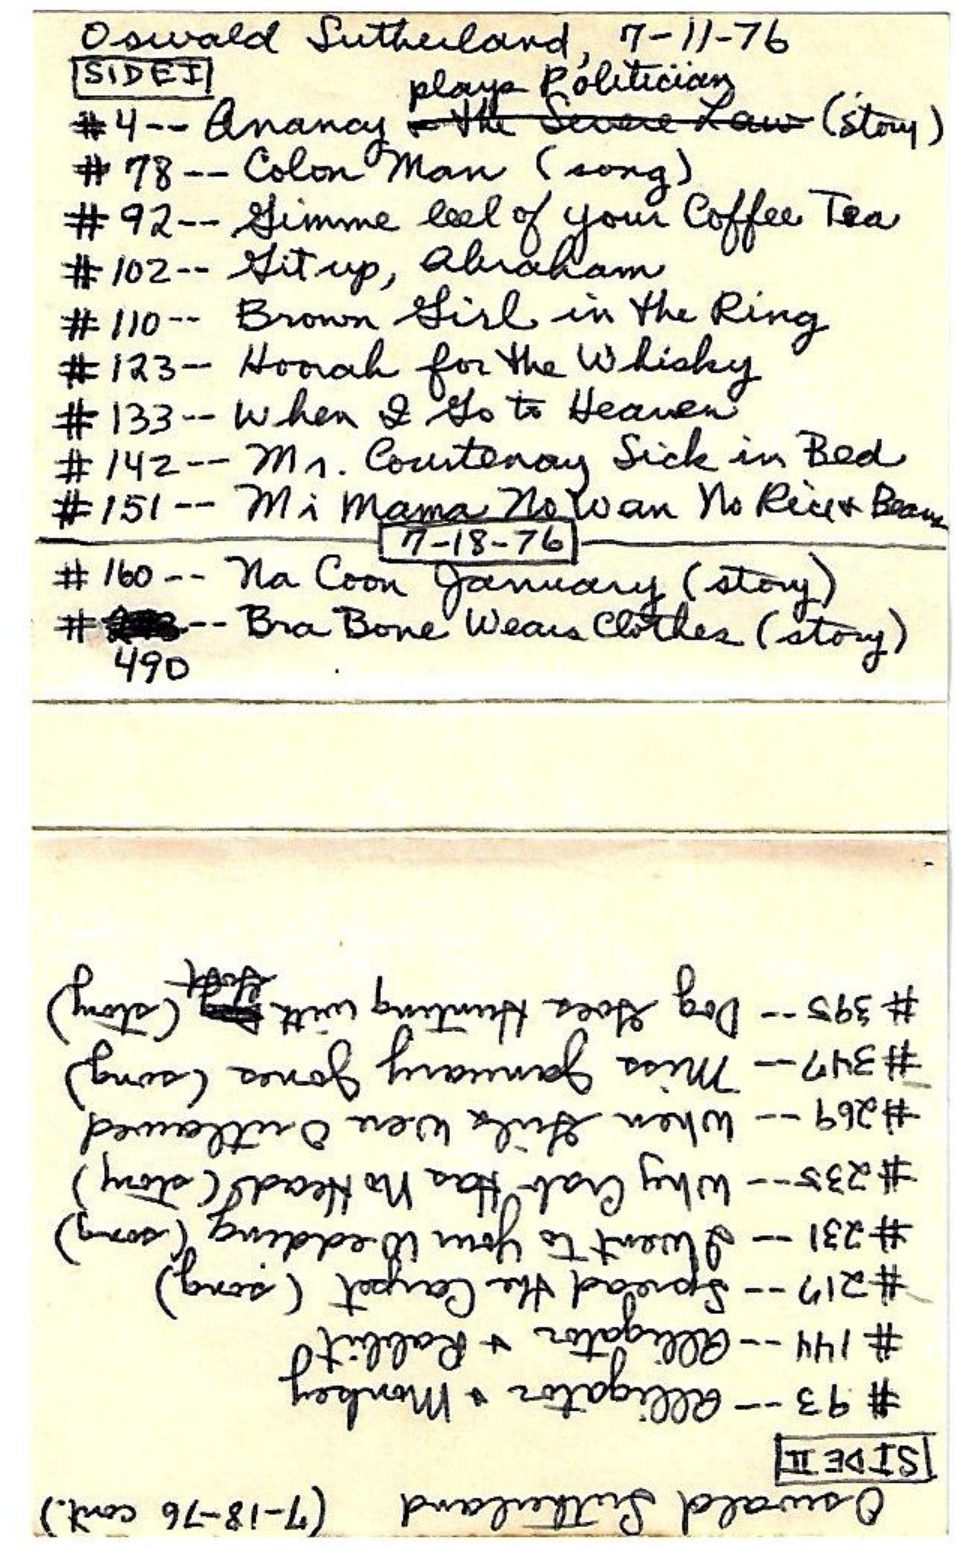 Oswald Sutherland, 7-11-76
SIDE I
plays Politician
#4-- Anancy & the Severe Law (story)
#78-- Colon Man (song)
#92-- Gimme leel of your Coffee Tea
#102-- Git up, Abraham
#110-- Brown Girl in the Ring
#123-- Hoorah for the Whisky
#133-- When I Go to Heaven
#142-- Mr. Courtenay Sick in Bed
#151-- Mi Mama No Wan No Rice & Beans
7-18-76
#160-- Na Coon January (story)
# -- Bra Bone Wears Clothes (story)
490
Oswald Sutherland (7-18-76 cont.)
SIDE II
#93-- Alligator & Monkey
#144-- Alligator & Rabbit
#217-- Spread the Carpet (song)
#231-- I Went to Your Wedding (song)
#235-- Why Crab Has No Head (story)
#269-- When Girls Were Outlawed
#347-- Miss January Jones (song)
#395-- Dog Goes Hunting with (story)
Goat